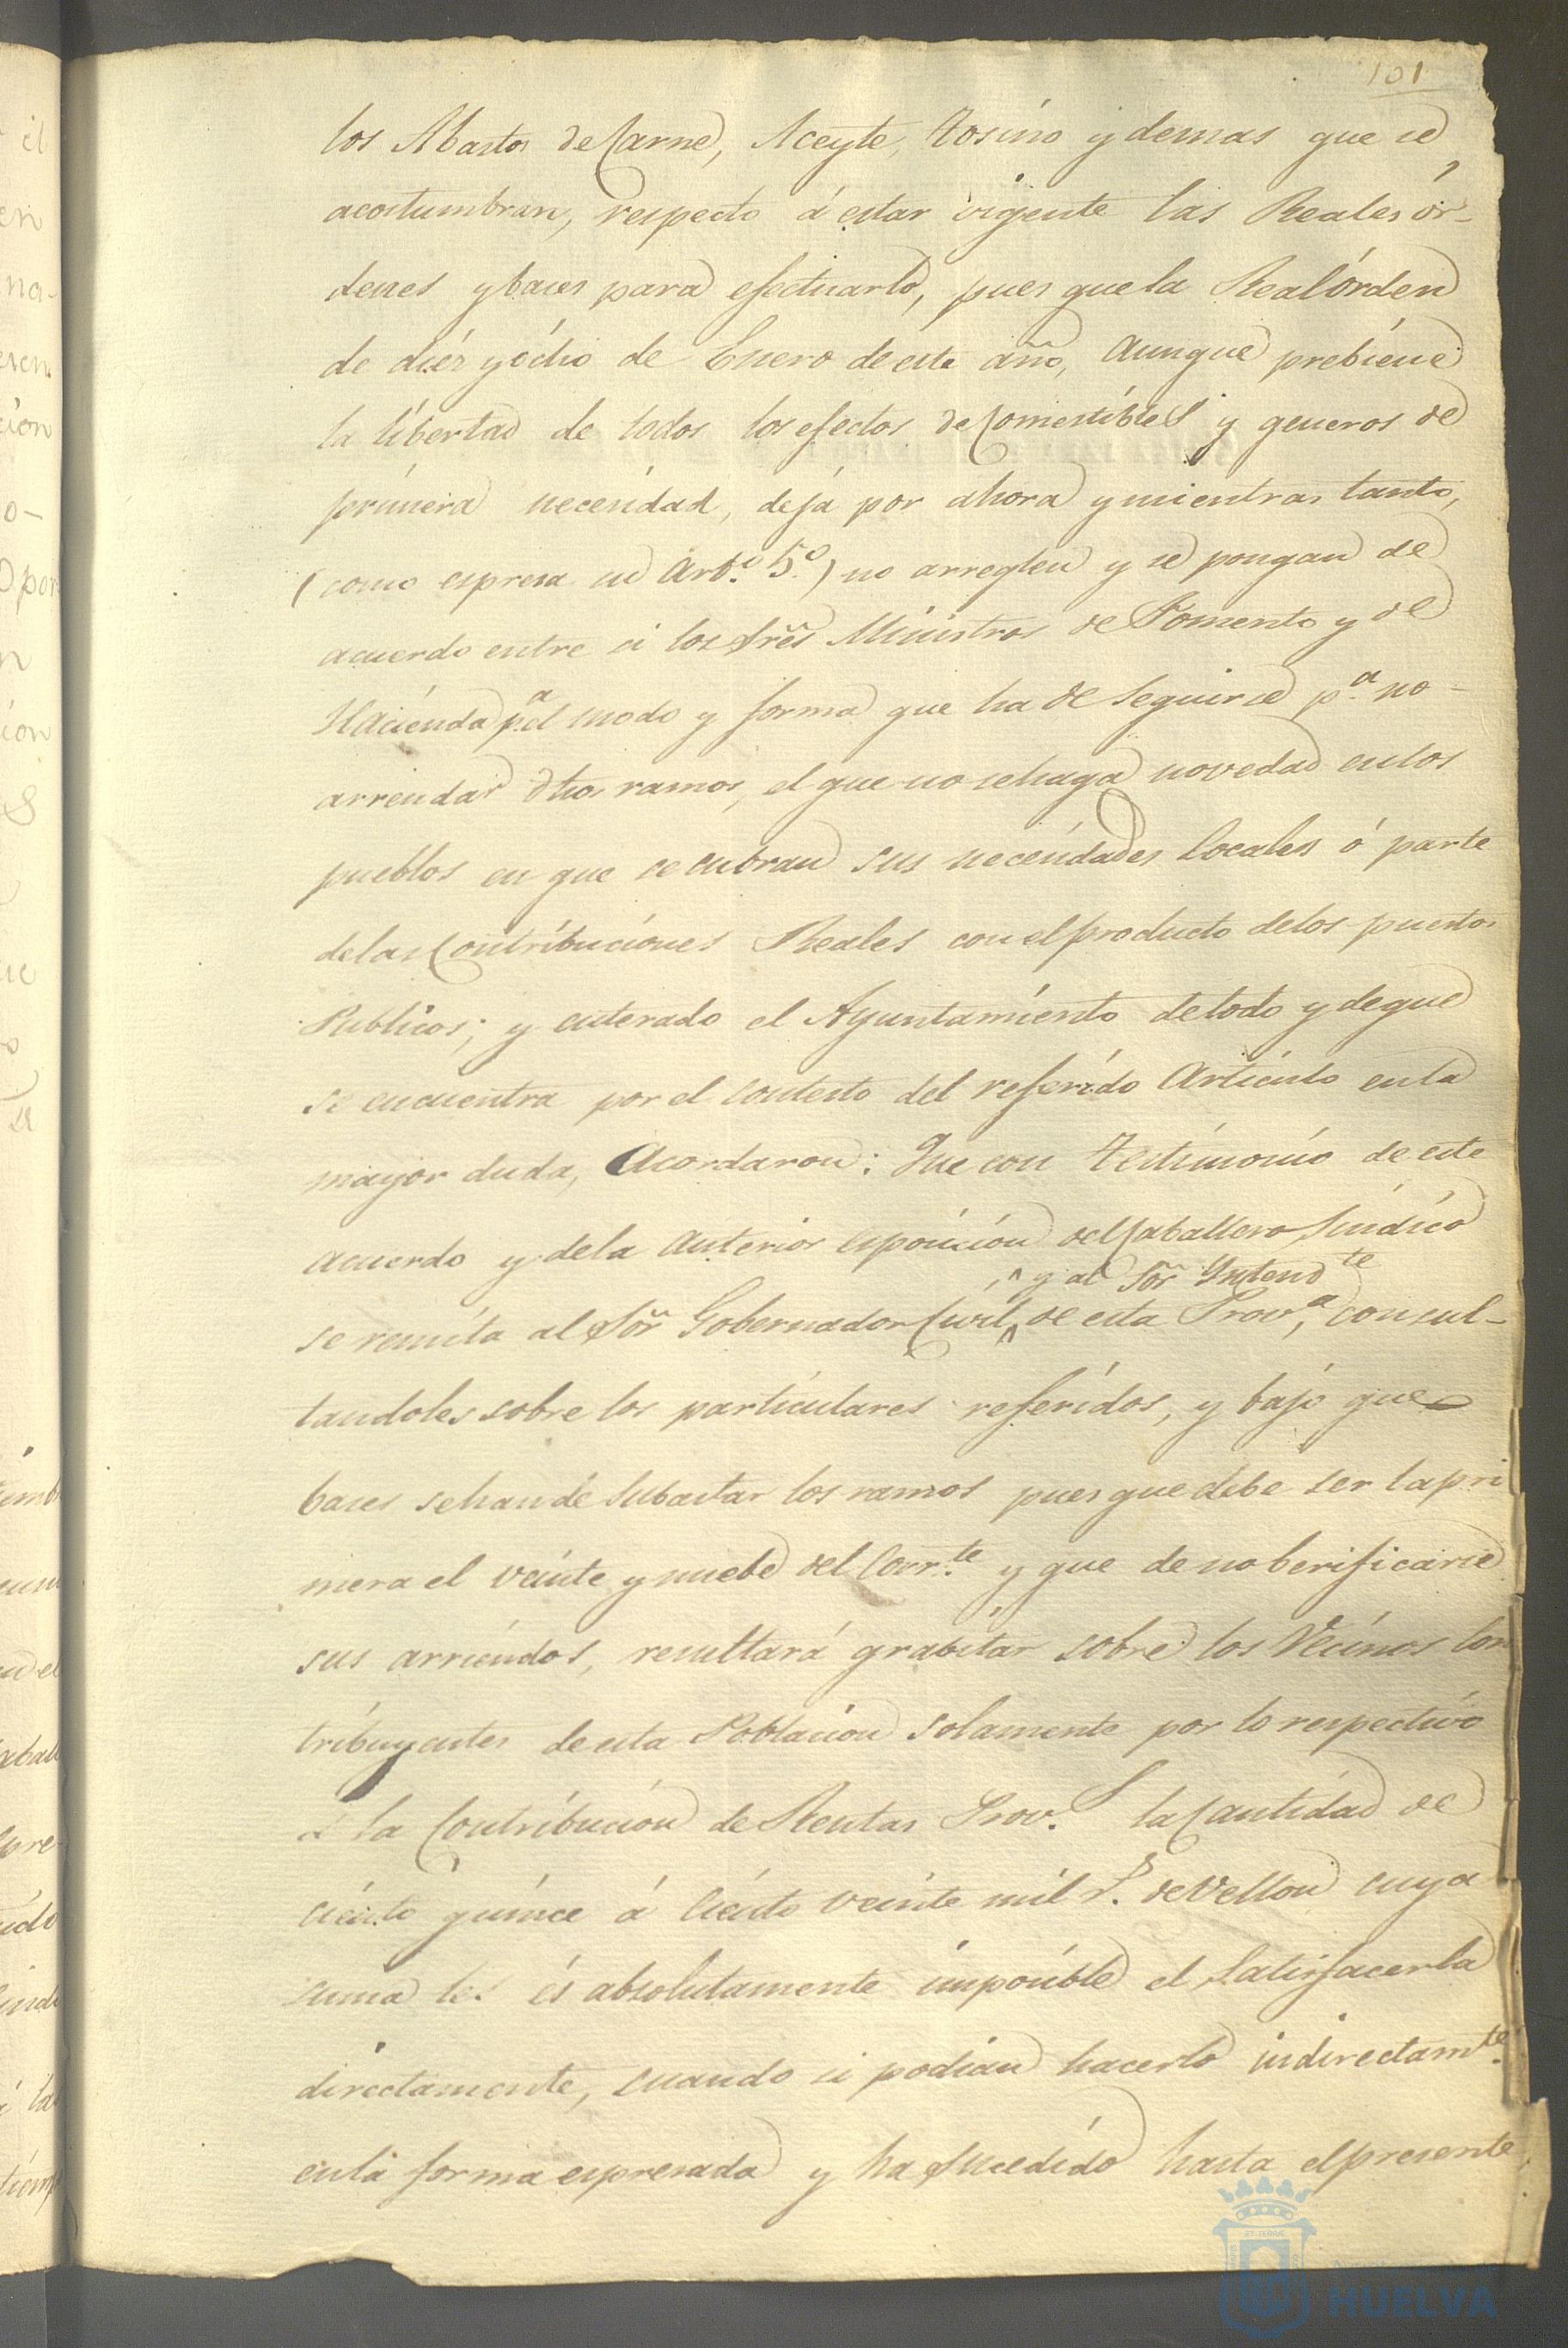 101
los Abastos de Carne, Aceyte, Tosino y demas que se
acostumbran, respecto á estar vigente las Reales ór-
denes y baces para efectuarlo, pues que la Real órden
de diéz y ócho de Enero de este año, aunque prebiene
la libertad de todos los efectos de Comestibles y generos de
primera necesidad, deja por ahora y mientras tanto,
(como espresa su Art.º 5.º) no arreglen y se pongan de
acuerdo entre si los Sres Ministros de Fomento y de
Hacienda p.a el modo y forma que ha de seguirse p.a no-
arrendar dhos ramos, el que no se haga novedad en los
pueblos en que se cubran sus necesidades Locales ó parte
de las Contribuciones Reales con el producto de los puestos
Publicos; y enterado el Ayuntamiento de todo y de que
se encuentra por el contesto del referido Articulo en la
mayor duda, Acordaron: Que con Testimonio de este
acuerdo y de la anterior esposicion del Caballero Sindico
^ y al Sor Yntend.te
se remita al Sor Gobernador Civil ^ de esta Prov.a, consul-
tandoles sobre los particulares referidos, y bajo que
baces se han de Subastar los ramos pues que debe ser la pri
mera el veinte y nuebe del Corr.te y que de no berificarse
sus arriendos, resultará grabitar sobre los Vecinos Con
tribuyentes de esta Poblacion solamente por lo respectivo
á la Contribucion de Rentas Prov.s la Cantidad de
ciento quince á Ciento veinte mil r.s de Vellon cuya
suma les és absolutamente imposible el Satisfacerla
directamente, cuando si podian hacerlo indirectam.te
en la forma espresada y ha Sucedido hasta el presente
HUELVA